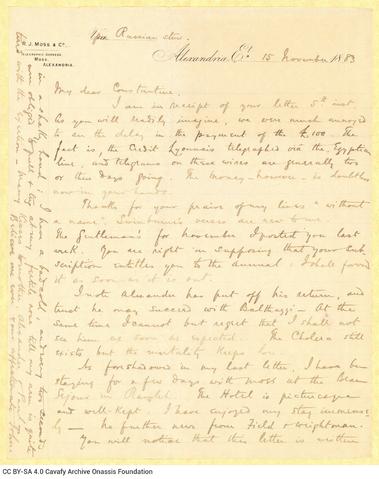 Per Russian str.
R. J. MOSS & Co.
TELEGRAPHIC ADDRESS
MOSS.
ALEXANDRIA.
Alexandria, Et. 15 November 1883
My dear Constantine,
I am in receipt of your letter 5th inst.
As you will readily imagine, we were much annoyed
to see the delay in the payment of the £100. The
fact is, the Credit Lyonnais telegraphed via the Egyptian
line, and telegrams on these wires are generally two
or three days going. The money - however - is doubtless
now in your hands.
Thanks for your praise of my lines "without
a name". Swinburne's verses are new to me.
The Gentleman's for November I posted you last
week. You are right in supposing that your sub-
scription entitles you to the annual: I shall forward
it as soon as it is out.
I note Alexander has put off his return, and
trust he may succeed with Baltazzi - At the
same time I cannot but regret that I shall not
see him as soon as expected. The Cholera still
exists but the mortality keeps low.
As foreshadowed in my last letter, I have been
staying for a few days with Moss at the Beau
Séjour in Ramleh. The Hotel is picturesque
and well-kept. I have enjoyed my stay immense-
ly - No further news from Field & Wrightman.
You will notice that this letter is written
in a shaky hand. I have a bad cold and
am obliged to
Believe me ever your affectionate John
CC BY-SA 4.0 Cavafy Archive Onassis Foundation